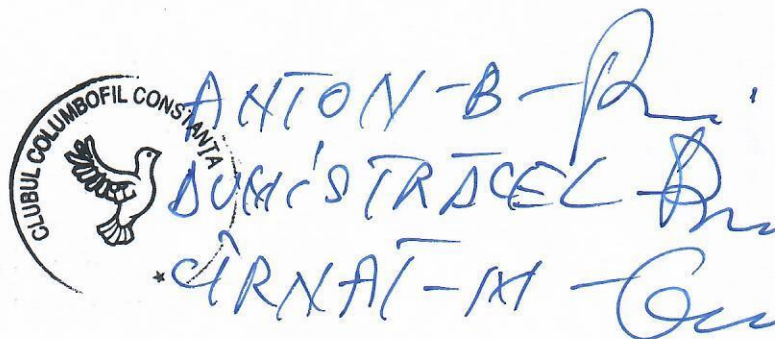 CLUBUL COLUMBOFIL CONSTANŢA
ANTON - B -
DUMISTRĂCEL
CÎRNAT - M -